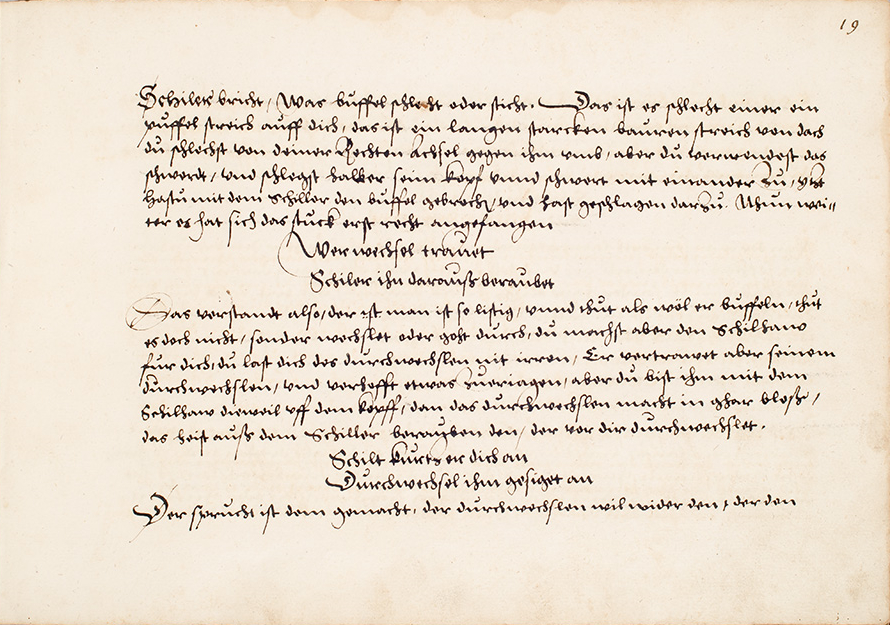 19
Schiler bricht, Was buffel schlecht oder sticht. Das ist es schlecht einer ein
puffel streich auff dich, das ist ein langen starcken bauren streich von dach
du schlechst von deiner Rechten Achsel gegen ihm vmb, aber du verwendest das
schwerdt, vnd schlegst halber seim kopf vnnd schwert mit einander zu, ytzt
hastu mit dem Schiller den buffel gebrochen, vnd hast geschlagen darzu. Nhun wei-
ter es hat sich das stuck erst recht angefangen
Wer wechsel trauet
Schiler ihn darauß beraubet
Das verstandt also, der ist man ist so listig, vnnd thut als wöl er buffeln, thut
es doch nicht, sonder wechslet oder goht durch, du machst aber den Schilhaw
fur dich, du last dich des durchwechslen nit irren, Er vertrawet aber seinem
durchwechslen, vnd verhofft etwas zueriagen, aber du bist ihm mit dem
Schilhaw dieweil vff dem kopff, dan das durchwechslen macht in ghar bloß,
das heist auß dem Schiller berauben den, der vor dir durchwechslet.
Schilt kurtz er dich an
Durchwechsel ihm gesiget an
Der spruch ist dem gemacht, der durchwechslen wil wider den, der den